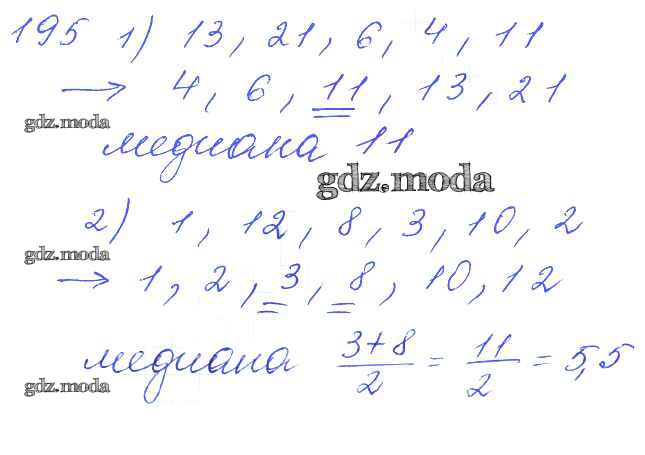 195 1) 13, 21, 6, 4, 11
→ 4, 6, 11, 13, 21
gdz.moda
медиана 11
gdz.moda
2) 1, 12, 8, 3, 10, 2
gdz.moda
→ 1, 2, 3, 8, 10, 12
медиана (3+8)/2 = 11/2 = 5,5
gdz.moda